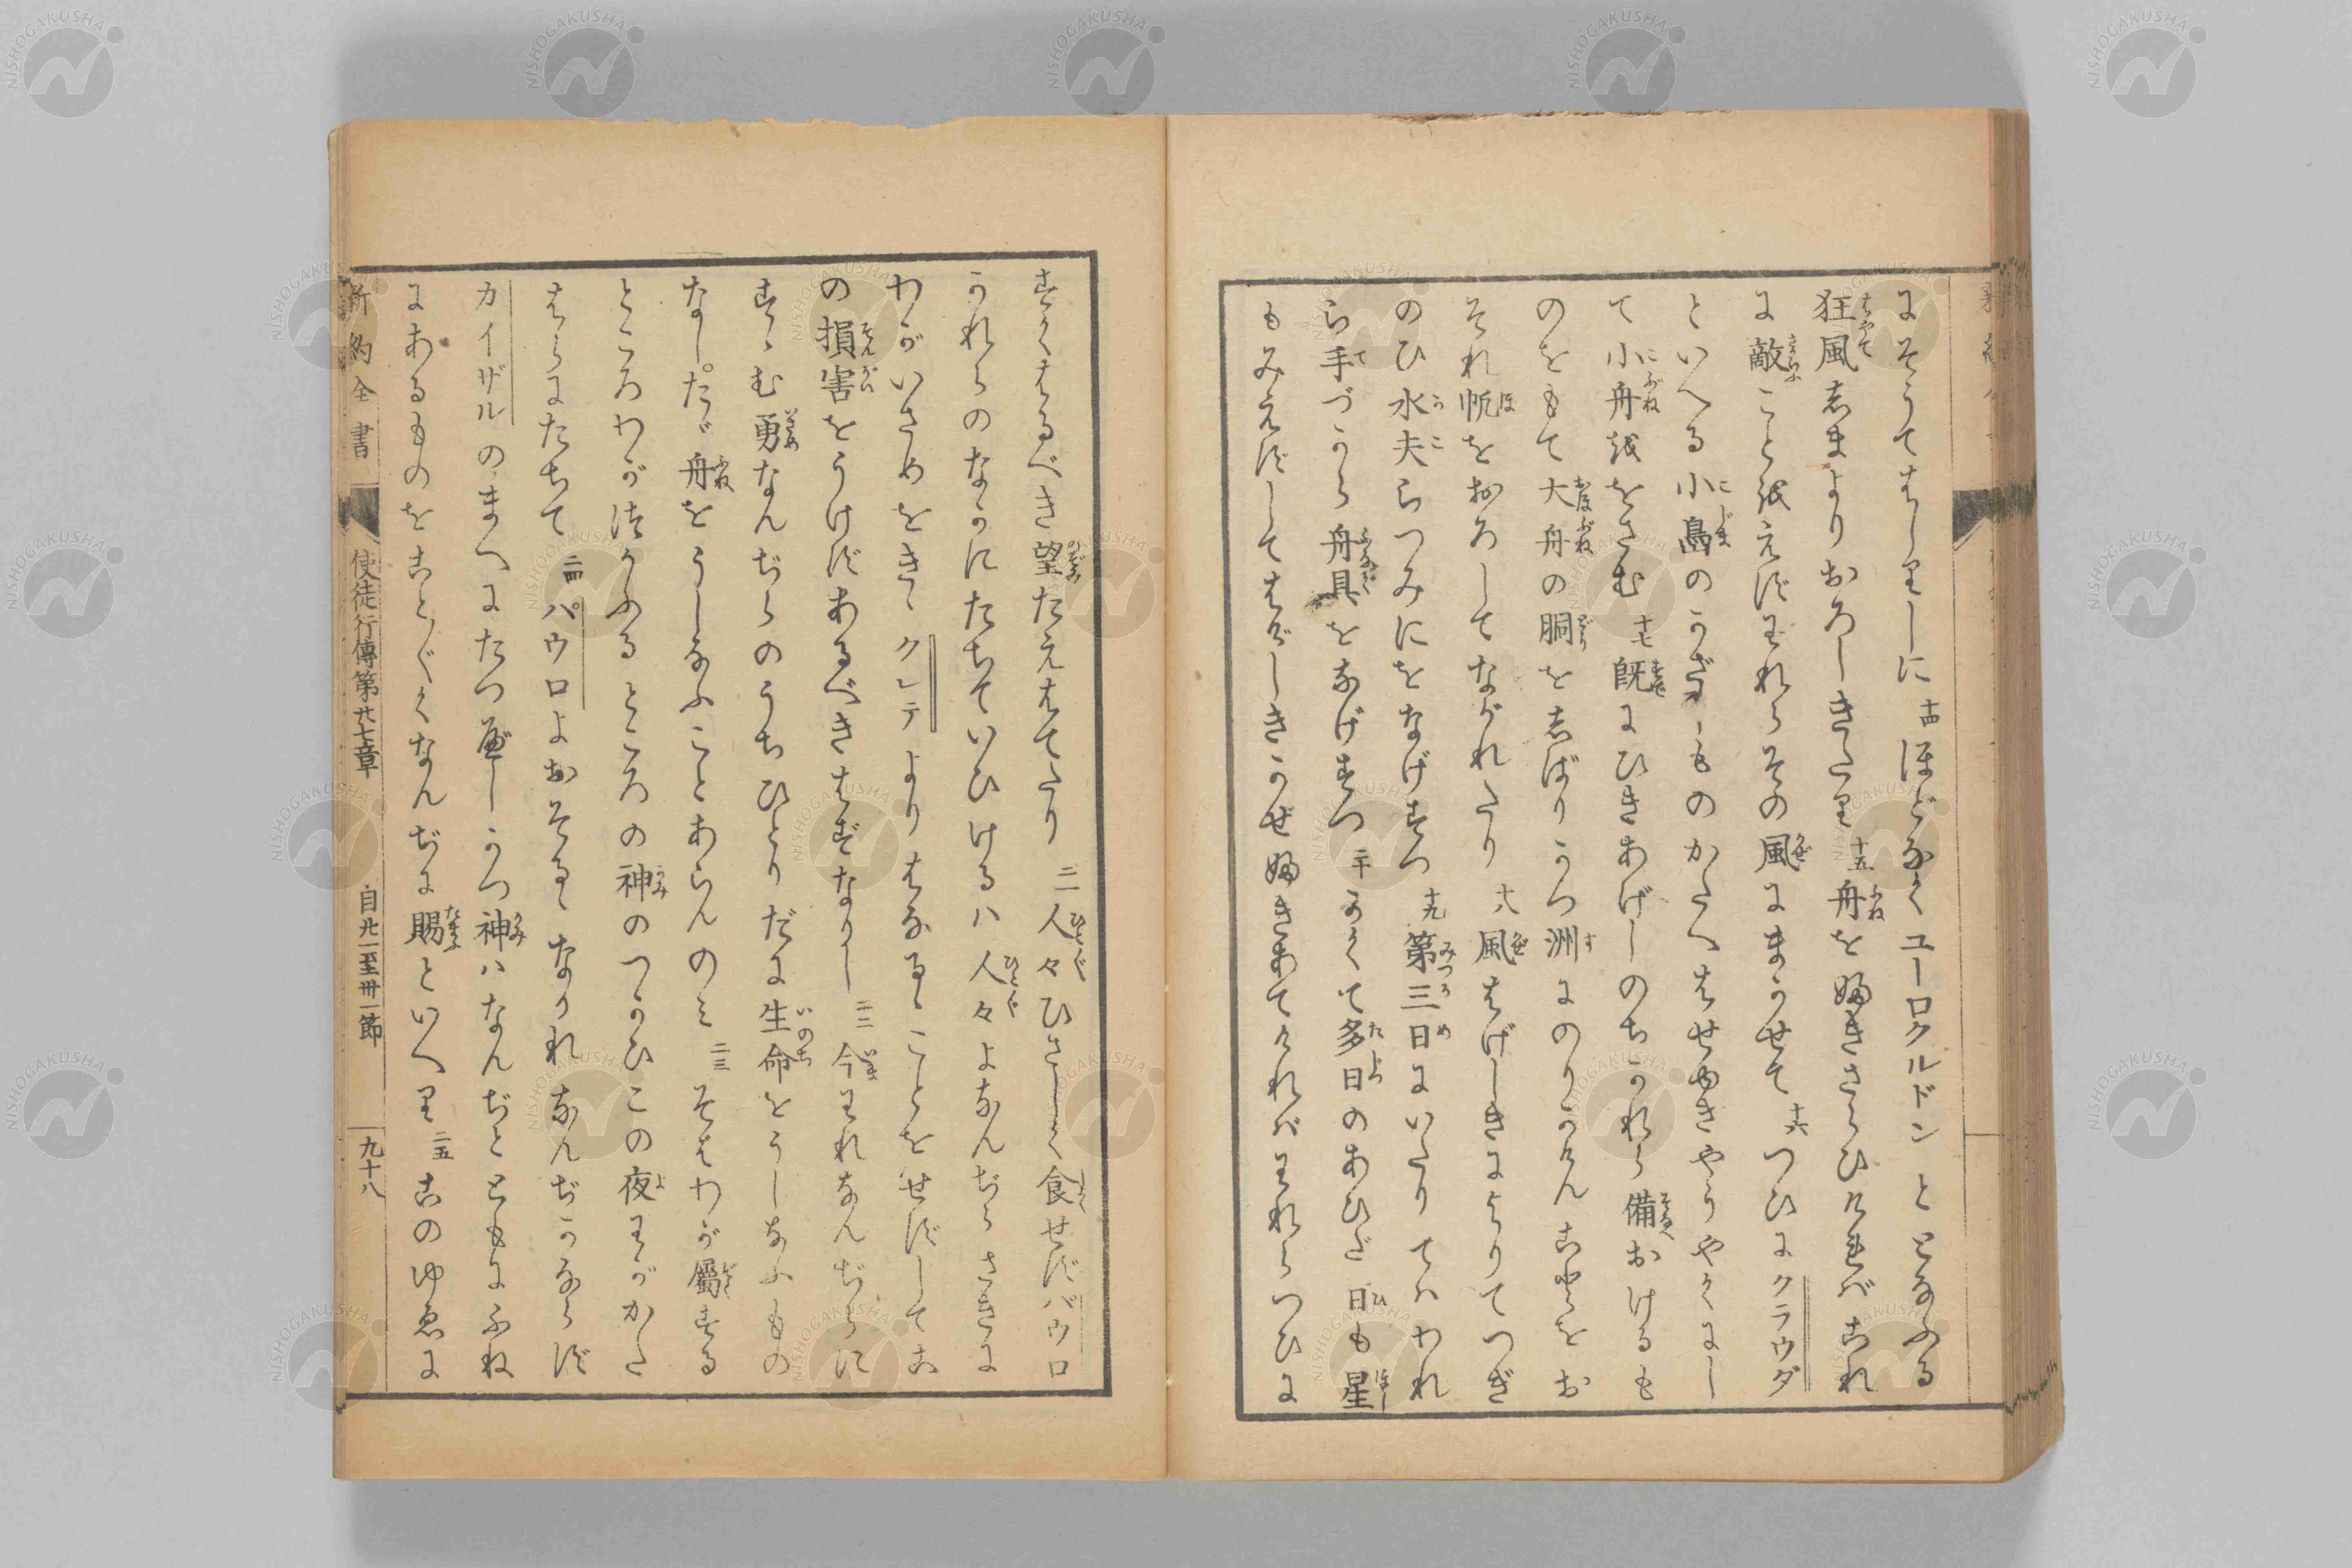 にそうてはしりしに 十四 ほどなくユーロクルドンととなふる
狂風しまよりおろしきたり 十五 舟を吹きさらひければこれ
に敵ことをえずわれらその風にまかせて 十六 つひにクラウダ
といへる小島のかざしものかたへはせゆきやうやくにし
て小舟ををさむ 十七 既にひきあげしのちかれら備おけるも
のをもて大舟の胴をしばりかつ洲にのりかけんことをお
それ帆をおろしてながれたり 十八 風はげしきによりてつぎ
のひ水夫らつみにをなげすつ 十九 第三日にいたりてハわれ
ら手づから舟具をなげすつ 二十 かくて多日のあひだ日も星
もみえずしてはげしきかぜ吹きあてければわれらつひに
すくはるべき望たえはてたり 二一 人々ひさしく食せずパウロ
かれらのなかにたちていひけるハ人々よなんぢらさきに
わがいさめをきゝクレテよりはなるゝことをせずしてこ
の損害をうけずあるべきはずなりし 二二 今われなんぢらに
すゝむ勇なんぢらのうちひとりだに生命をうしなふもの
なし。たゞ舟をうしなふことあらんのミ 二三 そはわが屬する
ところわがつかふるところの神のつかひこの夜わがかた
はらにたちて 二四 パウロよおそるゝなかれなんぢかならず
カイザルのまへにたつべしかつ神ハなんぢとともにふね
にあるものをことごとくなんぢに賜といへり 二五 このゆゑに
新約全書 使徒行傳第廿七章 自廿一至卅一節 九十八
NISHOGAKUSHA